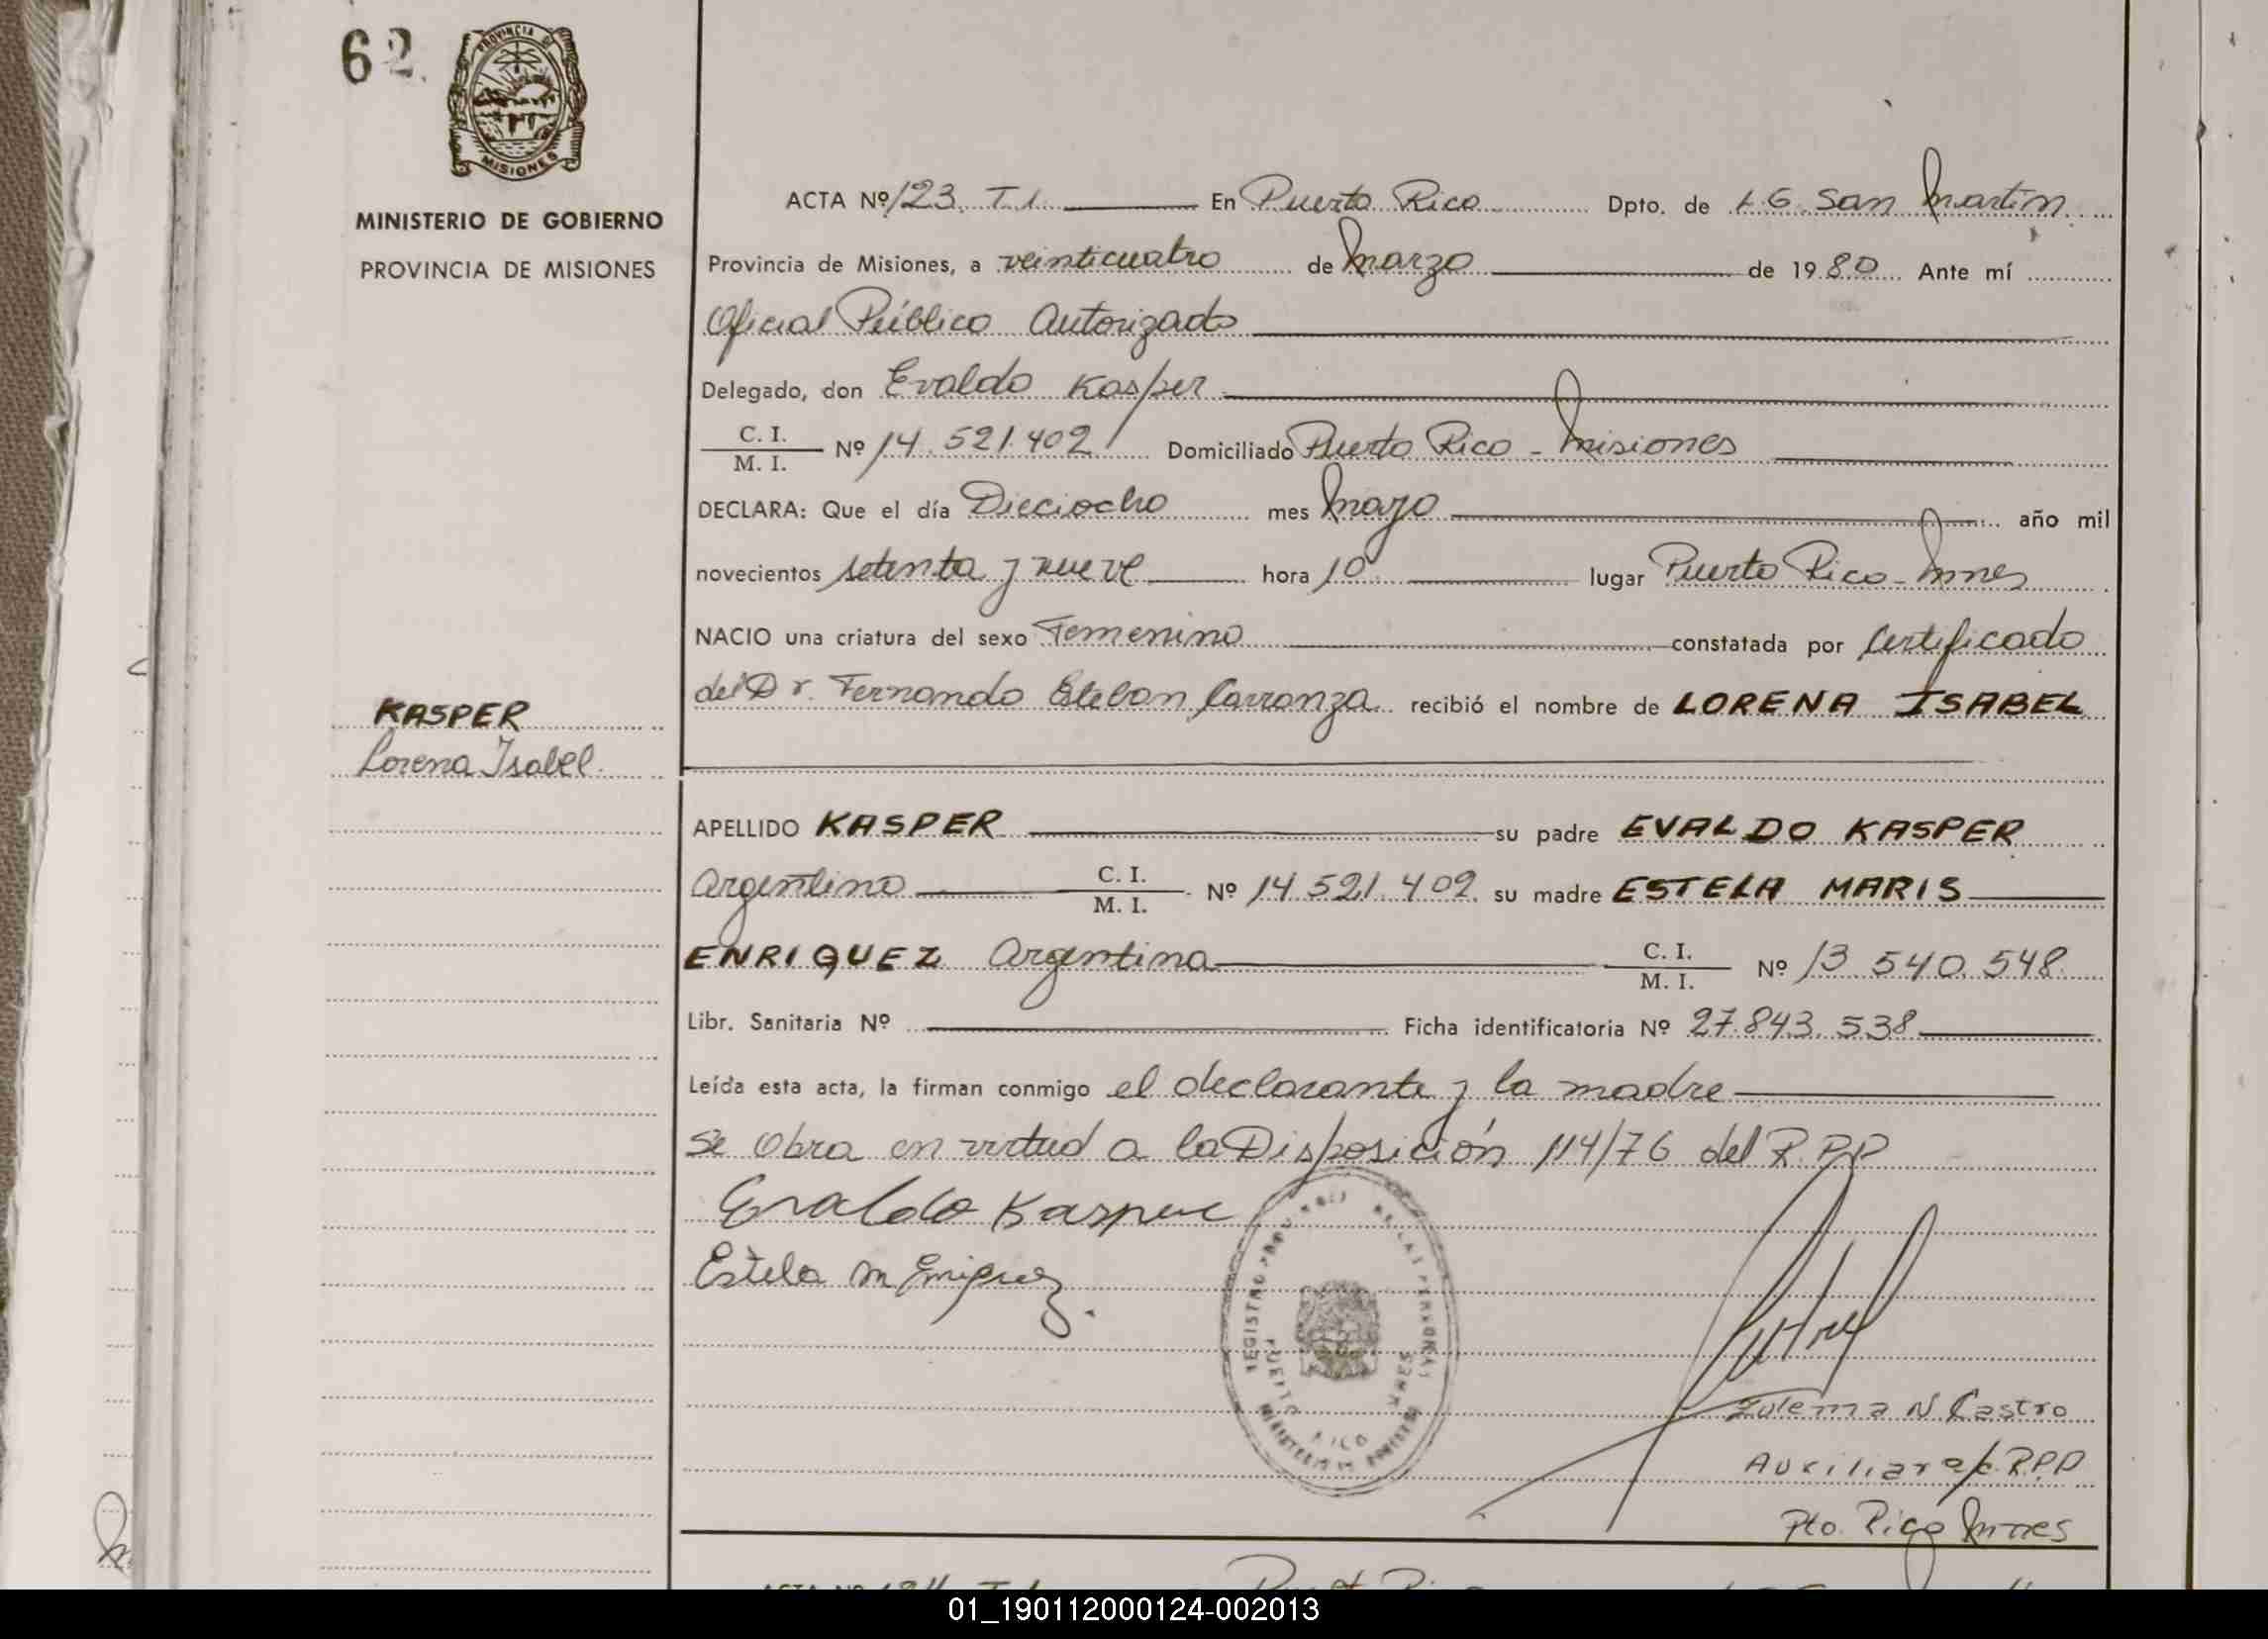 62.
PROVINCIA DE
MISIONES
MINISTERIO DE GOBIERNO
PROVINCIA DE MISIONES
KASPER
Lorena Isabel.
ACTA Nº 123. T.1. En Puerto Rico Dpto. de L.G. San Martín
Provincia de Misiones, a veinticuatro de Marzo de 1980 Ante mí
Oficial Público Autorizado
Delegado, don Evaldo Kasper
C. I.
M. I. Nº 14.521.402 Domiciliado Puerto Rico - Misiones
DECLARA: Que el día Dieciocho mes Mayo año mil
novecientos setenta y nueve hora 10 lugar Puerto Rico - Mnes
NACIO una criatura del sexo Femenino constatada por Certificado
del Dr. Fernando Esteban Carranza recibió el nombre de LORENA ISABEL
APELLIDO KASPER su padre EVALDO KASPER
Argentino C. I.
M. I. Nº 14.521.402 su madre ESTELA MARIS
ENRIQUEZ Argentina C. I.
M. I. Nº 13.540.548
Libr. Sanitaria Nº Ficha identificatoria Nº 27.843.538
Leída esta acta, la firman conmigo el declarante y la madre
Se Obra en virtud a la Disposición 114/76 del R.P.P
Evaldo Kasper
Estela M Enriquez.
REGISTRO PROVINCIAL DE LAS PERSONAS
PUERTO RICO MNES
MINISTERIO DE GOBIERNO
Zulema N Castro
Auxiliar a/c. R.P.P
Pto. Rico Mnes
01_190112000124-002013